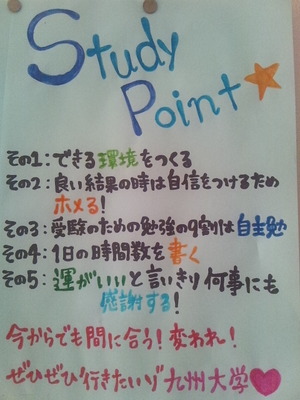 Study
Point
その1：できる環境をつくる
その2：良い結果の時は自信をつけるため
ホメる！
その3：受験のための勉強の9割は自主勉
その4：1日の時間数を書く
その5：運がいいと言いきり何事にも
感謝する！
今からでも間に合う！変われ！
ぜひぜひ行きたいゾ九州大学